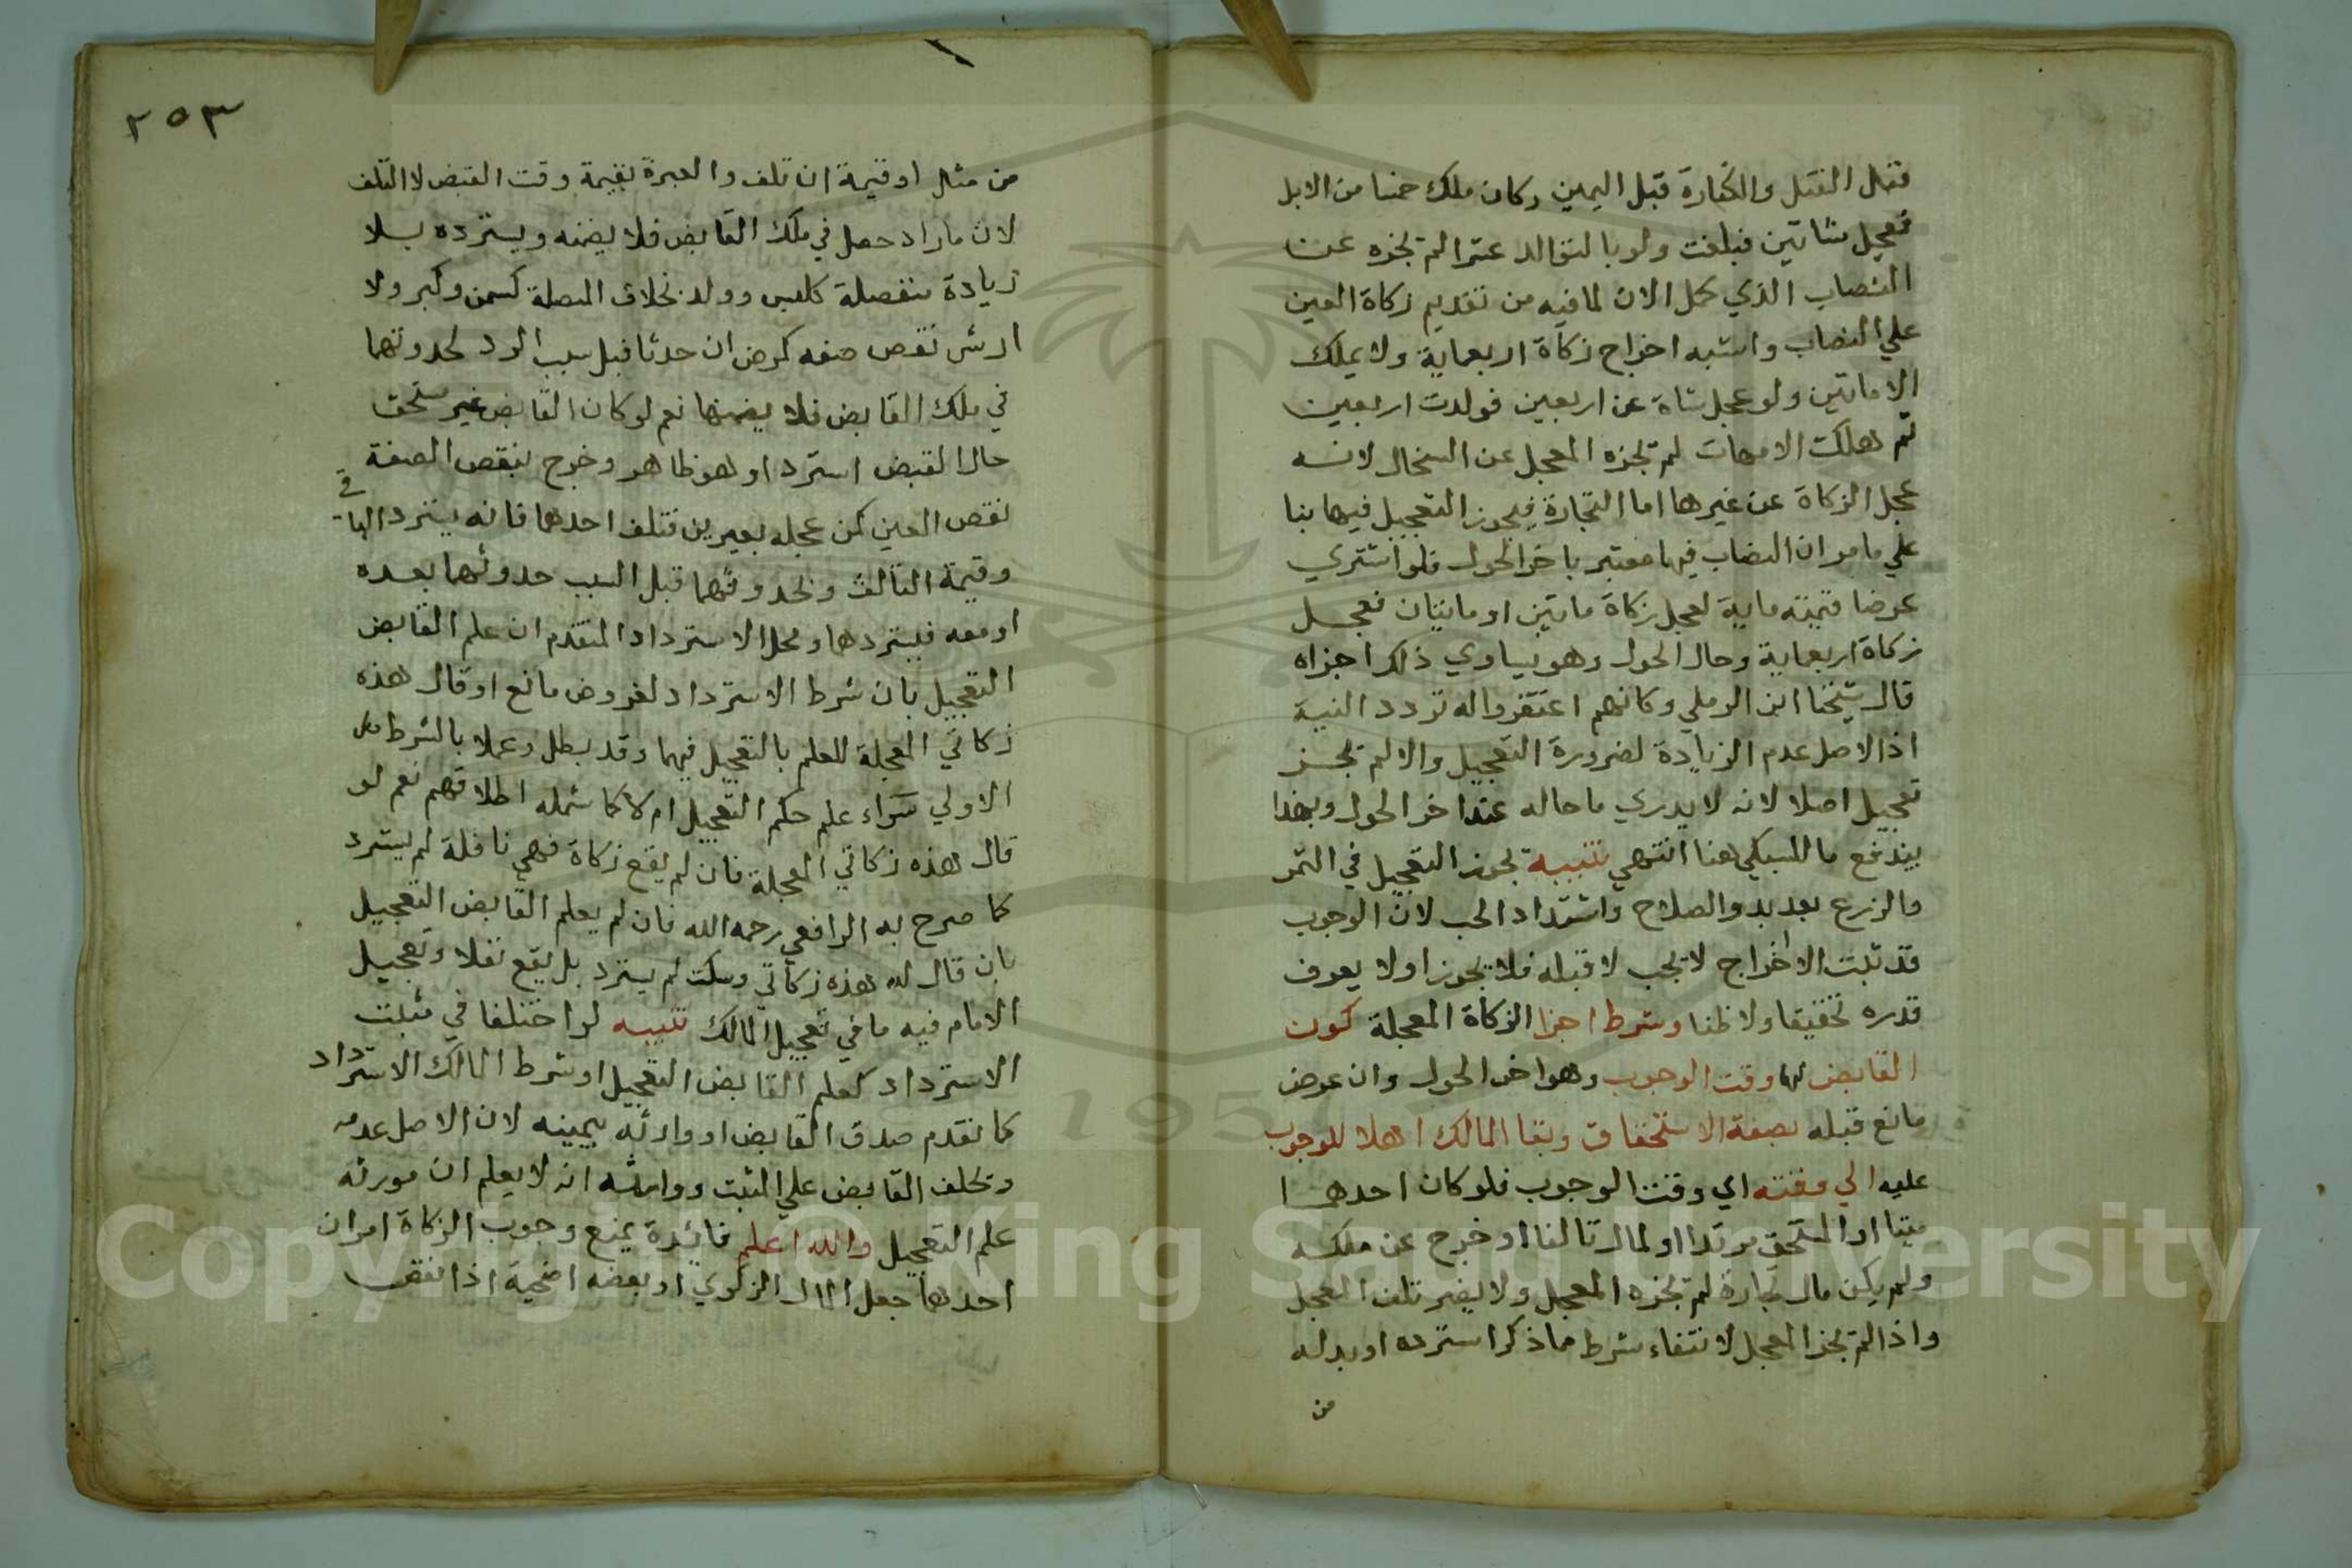 فقل القتل والكفارة قبل اليمين وكان ملك خمسا من الابل
فعجل شاتين فبلغت ولو بالتوالد عشرا لم تجزه عن
النصاب الذي كمل الان لما فيه من تقديم زكاة العين
علي النصاب واشبه اخراج زكاة اربعماية ولا يملك
الا ماتين ولو عجل شاة عن اربعين فولدت اربعين
ثم هلكت الامهات لم تجزه المعجل عن السخال لانه
عجل الزكاة عن غيرها اما التجارة فيجوز التعجيل فيها بنا
علي ما مر ان النصاب فيها معتبر باخر الحول فلو اشتري
عرضا قيمته ماية لعجل زكاة ماتين او ماتيان فعجل
زكاة اربعماية وحال الحول وهو يساوي ذلك اجزاه
قال شيخنا ابن الرملي وكانهم اغتفروا له تردد النية
اذ الاصل عدم الزيادة لضرورة التعجيل والا لم تجز
تعجيل اصلا لانه لا يدري ما حاله عند اخر الحول وبهذا
يندفع ما للسبكي هنا انتهي تنبيه يجوز التعجيل في الثمر
والزرع بعد بدو الصلاح واشتداد الحب لان الوجوب
قد ثبت الا اخراج لا يجب لا قبله فلا يجوز اولا يعرف
قدره تحقيقا ولا ظنا وشرط اجزا الزكاة المعجلة كون
القابض لها وقت الوجوب وهو اخر الحول وان عرض
مانع قبله بصفة الاستحقاق وبقا المالك اهلا للوجوب
عليه الي وقته اي وقت الوجوب فلو كان احدهما
ميتا او المستحق مرتدا او المال تالفا او خرج عن ملكه
ولم يكن مال تجارة لم تجزه المعجل ولا يضر تلف المعجل
واذا لم تجز المعجل لانتفاء شرط مما ذكر استرده او بدله
من
٢٥٣
من مثل او قيمة ان تلف والعبرة بقيمة وقت القبض لا التلف
لان ما زاد حصل في ملك القابض فلا يضمنه ويسترده بلا
زيادة منفصلة كلبن وولد بخلاف المتصلة كسمن وكبر ولا
ارش نقص صفه كمرض ان حدثا قبل سبب الرد لحدوثهما
في ملك القابض فلا يضمنها نعم لو كان القابض غير مستحق
حال القبض استردا وهو ظاهر وخرج بنقص الصفة
نقص العين كمن عجل بعيرين فتلف احدهما فانه يسترد الباقي
وقيمة التالف وبحدوثهما قبل السبب حدوثهما بعده
او معه فيستردهما ومحل الاسترداد المتقدم ان علم القابض
التعجيل بان شرط الاسترداد لعروض مانع او قال هذه
زكاتي المعجلة للعلم بالتعجيل فيهما وقد بطل وعملا بالشرط في
الاولي سواء علم حكم التعجيل ام لا كما شمله اطلاقهم نعم لو
قال هذه زكاتي المعجلة فان لم يقع زكاة فهي نافلة لم يسترد
كما صرح به الرافعي رحمه الله فان لم يعلم القابض التعجيل
بان قال له هذه زكاتي وسكت لم يسترد بل يقع نفلا وتعجيل
الامام فيه ما في تعجيل المالك تنبيه لو اختلفا في مثبت
الاسترداد كعلم القابض التعجيل او شرط المالك الاسترداد
كما تقدم صدق القابض او وارثه بيمينه لان الاصل عدمه
ويحلف القابض علي المثبت ووارثه انه لا يعلم ان مورثه
علم التعجيل والله اعلم فائدة يمنع وجوب الزكاة امران
احدهما جعل المال الزكوي او بعضه اضحية اذا نقص
Copyright © King Saud University
1957